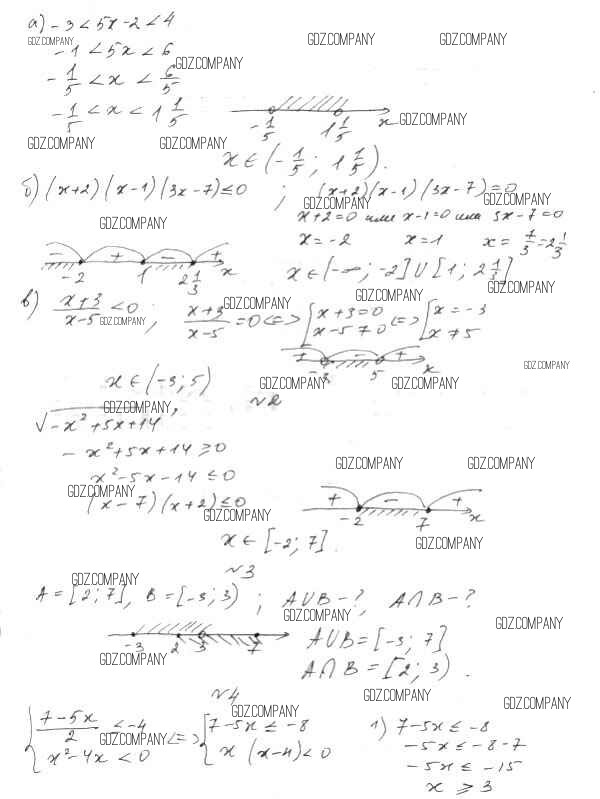 а) -3 < 5x - 2 < 4
GDZ.COMPANY GDZ.COMPANY GDZ.COMPANY
-1 < 5x < 6
GDZ.COMPANY
-1/5 < x < 6/5
-1/5 < x < 1 1/5
-1/5 1 1/5 x GDZ.COMPANY
GDZ.COMPANY GDZ.COMPANY
x ∈ (-1/5; 1 1/5).
б) (x+2)(x-1)(3x-7) ≤ 0 ; (x+2)(x-1)(3x-7) = 0
GDZ.COMPANY GDZ.COMPANY
GDZ.COMPANY x+2=0 или x-1=0 или 3x-7=0
x=-2 x=1 x = 7/3 = 2 1/3
+ - +
-2 1 2 1/3 x
x ∈ (-∞; -2] ∪ [1; 2 1/3]
GDZ.COMPANY GDZ.COMPANY GDZ.COMPANY
в) (x+3)/(x-5) < 0 ; (x+3)/(x-5) = 0 <=> { x+3=0 x-5≠0 <=> { x=-3 x≠5
GDZ.COMPANY
+ - +
-3 5 x
GDZ.COMPANY
x ∈ (-3; 5)
GDZ.COMPANY GDZ.COMPANY
GDZ.COMPANY №2
√-x²+5x+14
-x²+5x+14 ≥ 0
x²-5x-14 ≤ 0
GDZ.COMPANY GDZ.COMPANY GDZ.COMPANY
(x-7)(x+2) ≤ 0
+ - +
-2 7 x
GDZ.COMPANY
x ∈ [-2; 7].
GDZ.COMPANY
№3
GDZ.COMPANY
A = [2; 7], B = [-3; 3) ; A∪B-?, A∩B-?
GDZ.COMPANY GDZ.COMPANY
-3 2 3 7
A∪B = [-3; 7]
GDZ.COMPANY
A∩B = [2; 3).
№4
GDZ.COMPANY GDZ.COMPANY GDZ.COMPANY
{ (7-5x)/2 ≤ -4 x²-4x < 0 <=> { 7-5x ≤ -8 x(x-4) < 0
GDZ.COMPANY
1) 7-5x ≤ -8
-5x ≤ -8-7
-5x ≤ -15
x ≥ 3